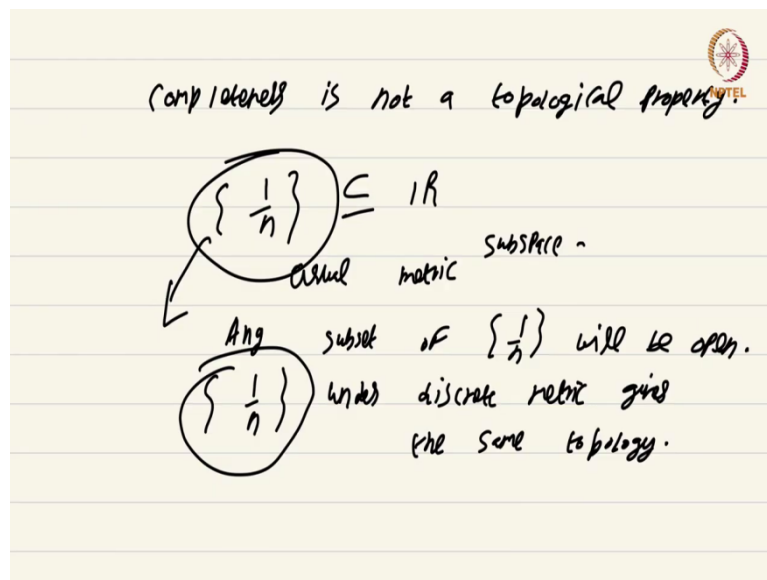 Completeness is not a topological property.
NPTEL
{ 1/n } ⊆ ℝ
usual metric subspace.
Any subset of {1/n} will be open.
{ 1/n } under discrete metric gives
the same topology.